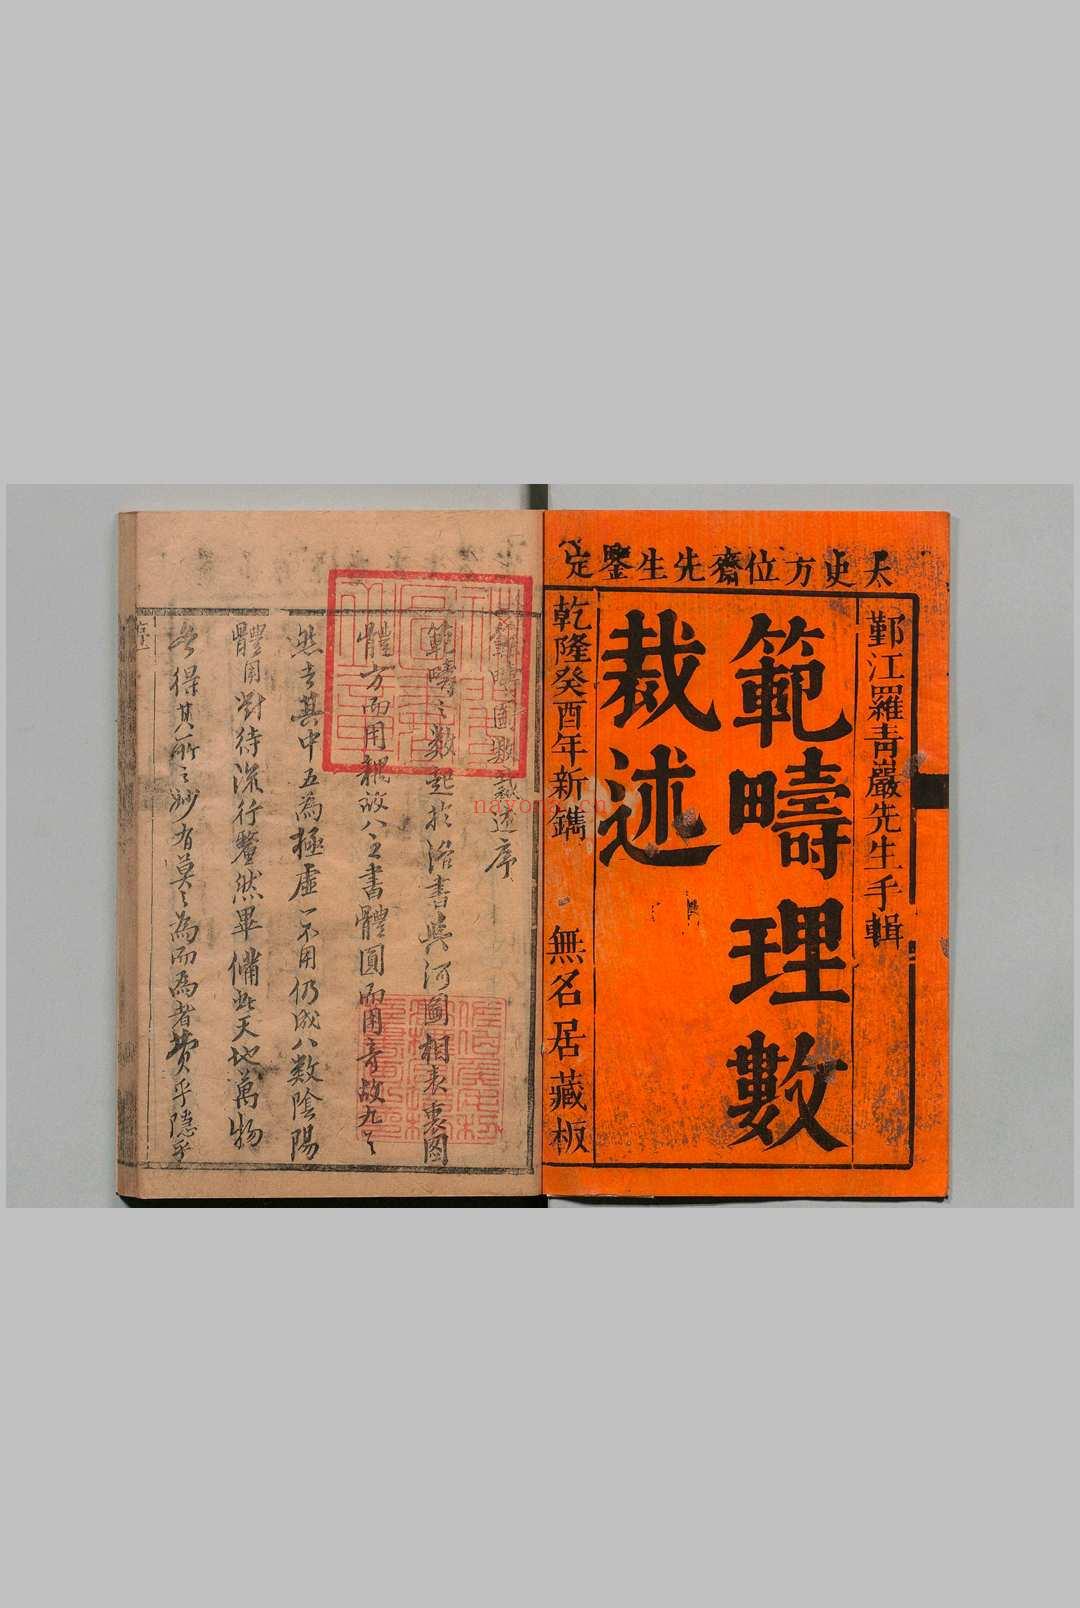 太史方位齋先生鑒定
鄞江羅青巖先生手輯
範疇理數
裁述
乾隆癸酉年新鐫　無名居藏板
範疇圖數裁述序
範疇之數起於洛書與河圖相表裏圖
體方而用耦故八之書體圓而用奇故九之
然去其中五為極虛一不用仍成八數陰陽
體用對待流行釐然畢備此天地萬物
得其所之妙有莫之為而為者費乎隱乎